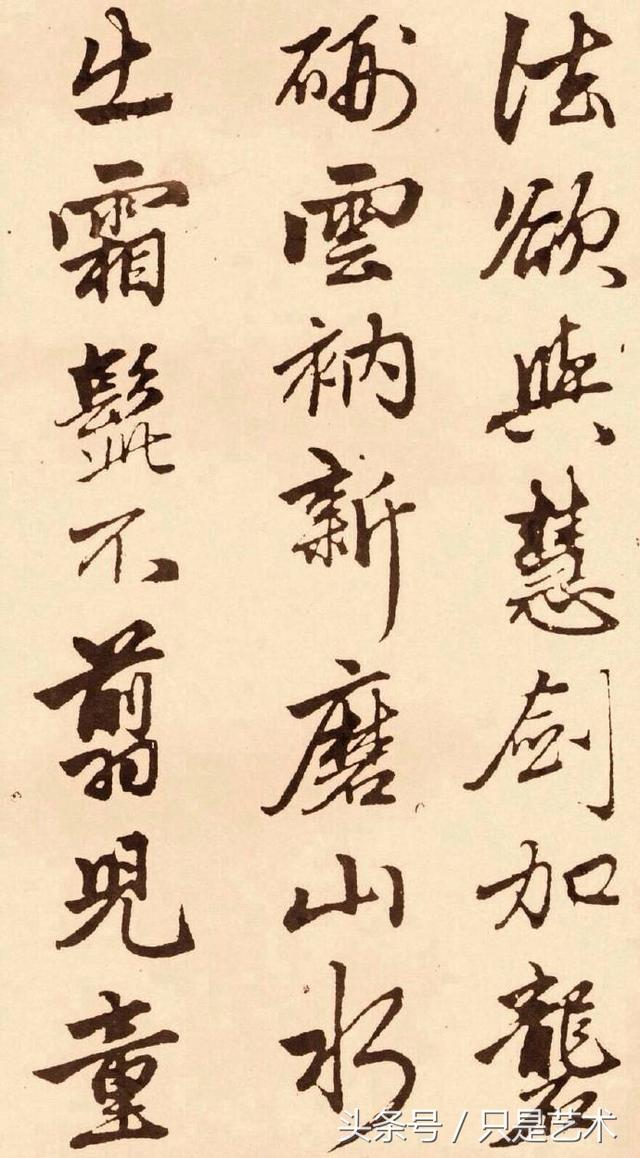 法欲與慧劍加礱
硎雲衲新磨山水
出霜髭不翦兒童
头条号 / 只是艺术